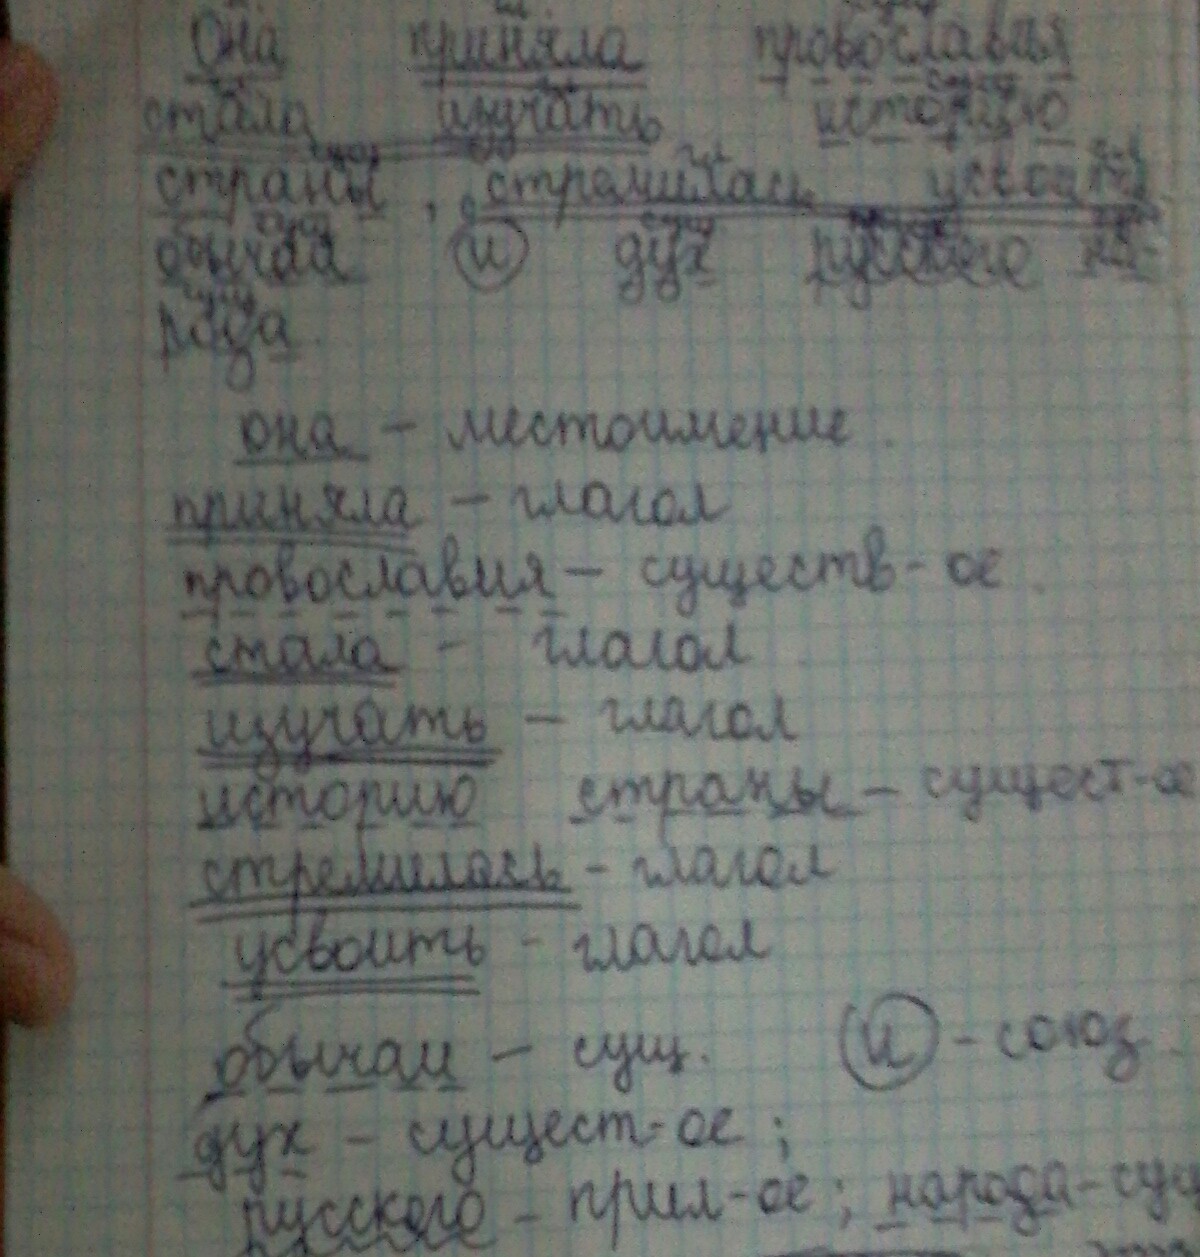 Она приняла провославия
стала изучать историю
страны, стремилась усвоить
обычаи и дух русского на-
рода.
она – местоимение.
приняла – глагол
провославия – существ-ое.
стала – глагол
изучать – глагол
историю страны – сущест-ое
стремилась – глагол
усвоить – глагол
обычаи – сущ. и – союз.
дух – сущест-ое;
русского – прил-ое; народа – сущ